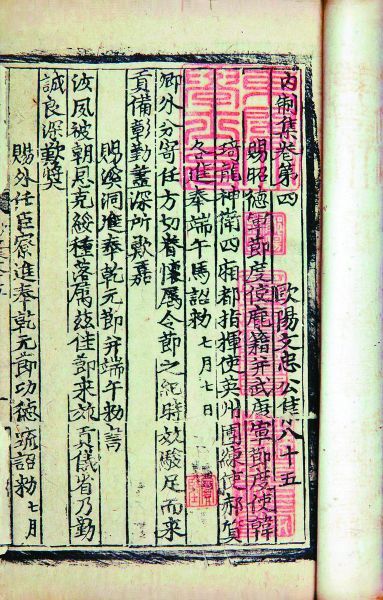 內制集卷第四　歐陽文忠公集八十五
賜昭德軍節度使龐籍并武康軍節度使韓
琦龍神衛四廂都指揮使英州團練使郝質
各進奉端午馬詔勑七月七日
卿外分寄任方切眷懷屬令節之紀時效駿足而來
貢備彰勤藎深所歎嘉
賜溪洞進奉乾元節并端午勑書
汝夙被朝恩克綏種落屬茲佳節來效貢儀省乃勤
誠良深歎獎
賜外任臣寮進奉乾元節功德疏詔勑七月